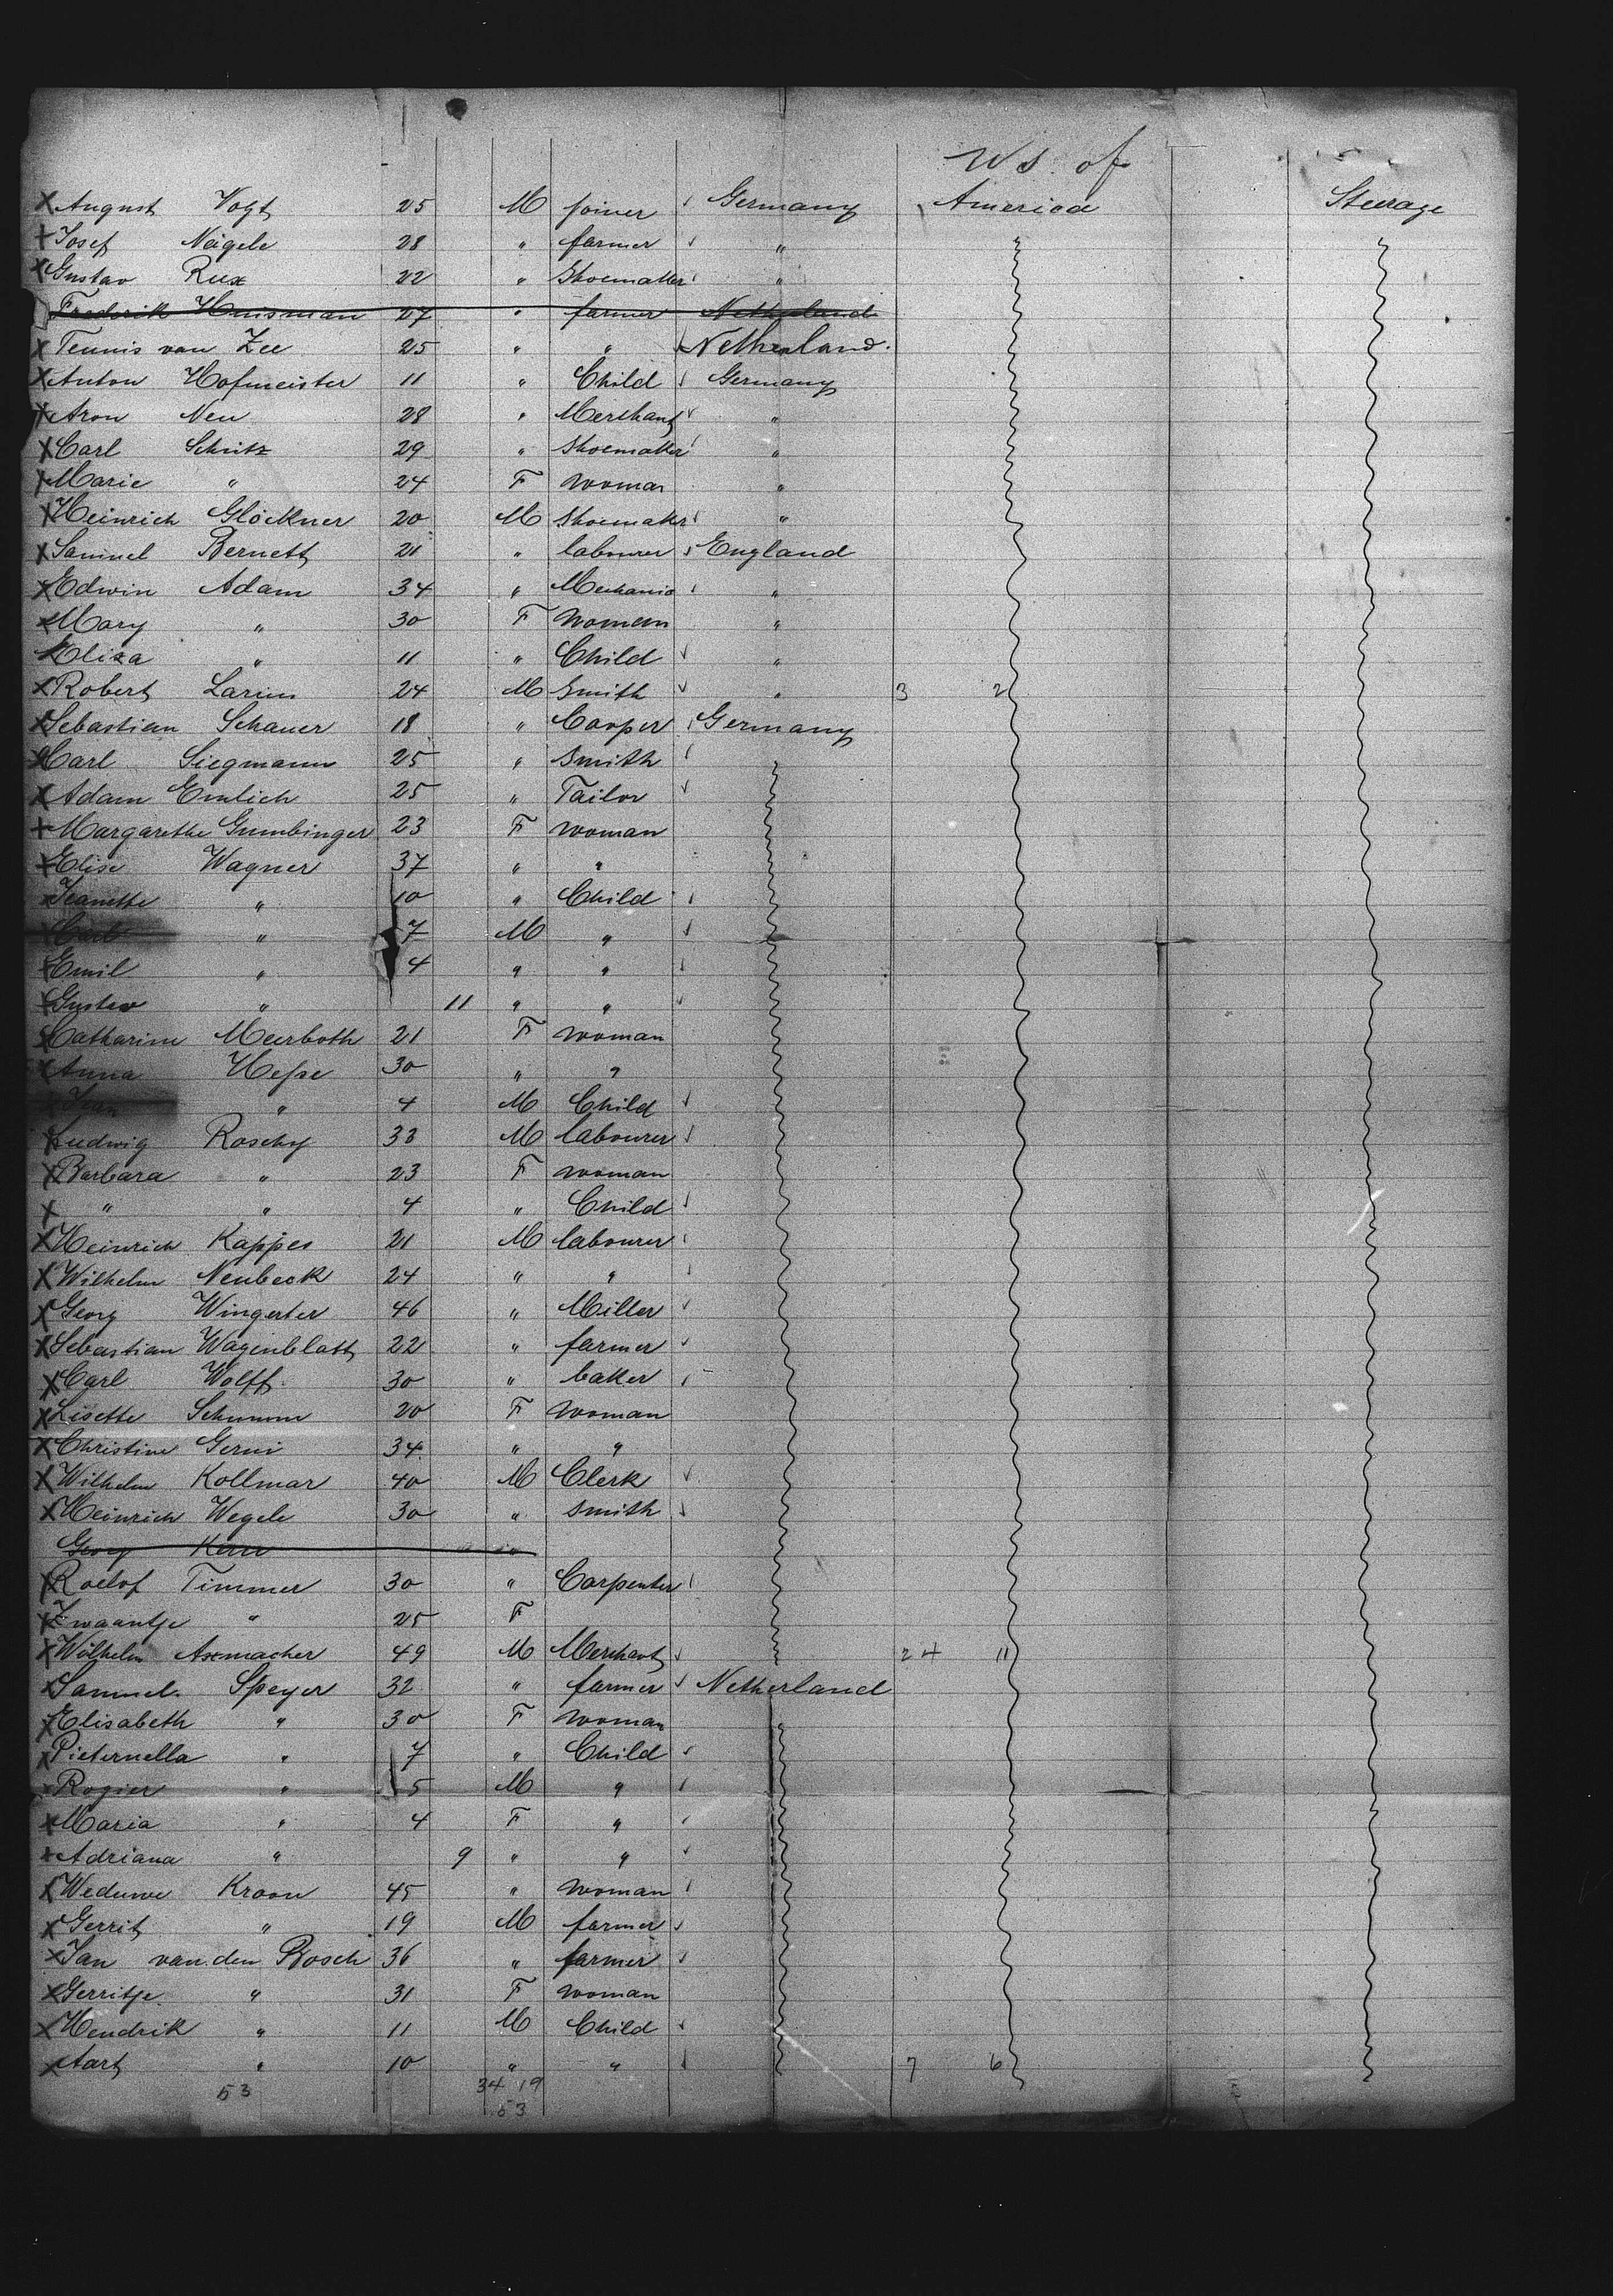 US. of
X August Vogt 25 M joiner Germany America Steerage
+ Josef Nägele 28 " farmer "
X Gustav Rux 22 " Shoemaker "
Frederik Huisman 27 " farmer Netherland
X Teunis van Zee 25 " " Netherland.
X Anton Hofmeister 11 " Child Germany
X Aron Neu 28 " Merchant "
X Carl Schütz 29 " shoemaker "
X Marie " 24 F woman "
X Heinrich Glöckner 20 M shoemaker "
X Samuel Bernett 21 " labourer England
X Edwin Adam 34 " Mechanic "
X Mary " 30 F Woman "
X Eliza " 11 " Child "
X Robert Larius 24 M Smith " 3 2
X Sebastian Schauer 18 " Cooper Germany
X Carl Siegmann 25 " smith
X Adam Emlich 25 " Tailor
+ Margarethe Gumbinger 23 F woman
X Elise Wagner 37 " "
X Jeanette " 10 " Child
X Carl " 7 M "
X Emil " 4 " "
X Gustav " 11 " "
X Catharine Meerboth 21 F woman
X Anna Hesse 30 " "
X Jean " 4 M Child
X Ludwig Roschy 33 M labourer
X Barbara " 23 F woman
X " " 4 " Child
X Heinrich Kappes 21 M labourer
X Wilhelm Neubeck 24 " "
X Georg Wingerter 46 " Miller
X Sebastian Wagenblatt 22 " farmer
X Carl Wolff 30 " baker
X Lisette Schumm 20 F Woman
X Christine Gerni 34 " "
X Wilhelm Kollmar 40 M Clerk
X Heinrich Wegele 30 " smith
Georg Kern "
X Roelof Timmer 30 " Carpenter
X Zwaantje " 25 F
X Wilhelm Axmacher 49 M Merchant 24 11
X Samuel Speyer 32 " farmer Netherland
X Elisabeth " 30 F Woman
X Pieternella " 7 " Child
X Rogier " 5 M "
X Maria " 4 F "
X Adriana " 9 " "
X Weduwe Kroon 45 " woman
X Gerrit " 19 M farmer
X Jan van den Bosch 36 " farmer
X Gerritje " 31 F woman
X Hendrik " 11 M Child
X Aart " 10 " " 7 6
53 34 19
53